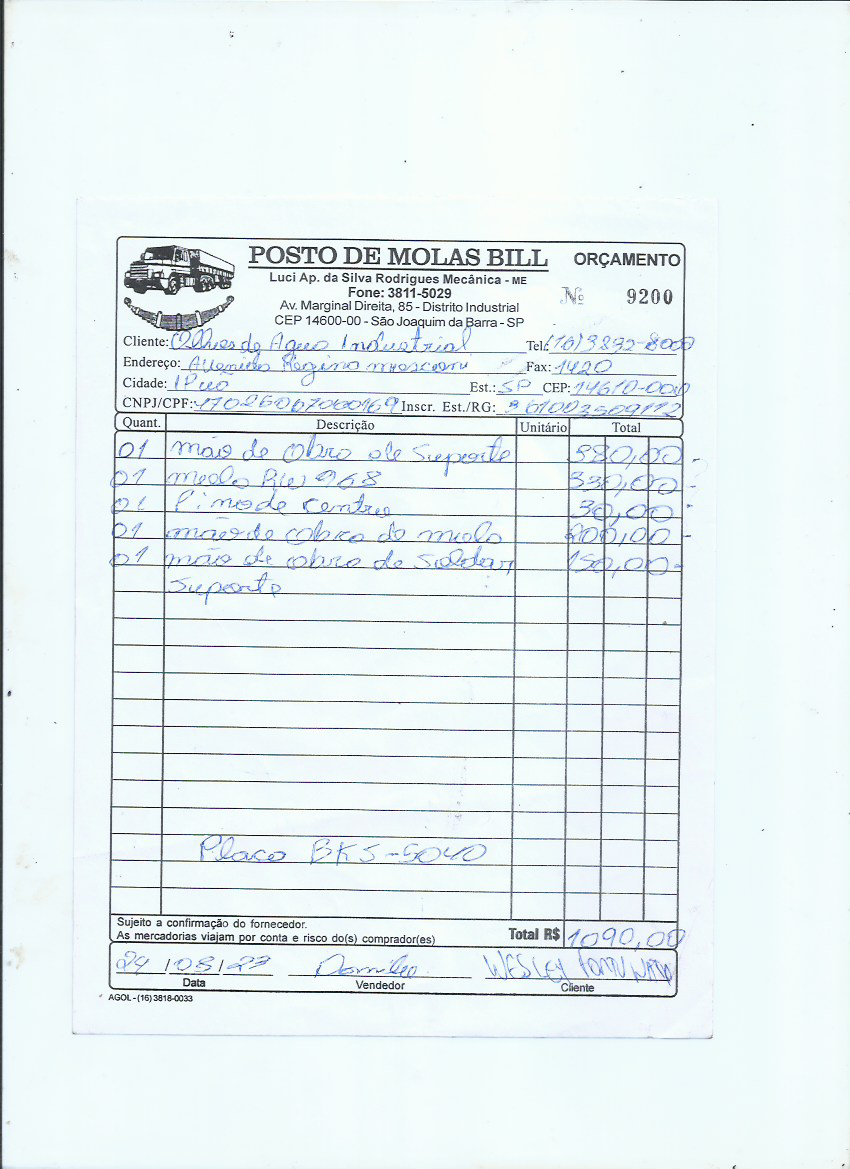 POSTO DE MOLAS BILL ORÇAMENTO
Luci Ap. da Silva Rodrigues Mecânica - ME
Fone: 3811-5029
Nº 9200
Av. Marginal Direita, 85 - Distrito Industrial
CEP 14600-00 - São Joaquim da Barra - SP
Cliente: Olhos de Agua Industrial Tel: (16)3832-8000
Endereço: Avenida Regina Fax: 1420
Cidade: IPuã Est.: SP CEP: 14610-000
CNPJ/CPF: Inscr. Est./RG:
Quant. Descrição Unitário Total
01 mão de obra de Suporte 380,00
01 968 330,00
01 Pino de centro 30,00
01 mão de obra do 200,00
01 mão de obra de Soldar 150,00
Suporte
Placa BKS-5040
Sujeito a confirmação do fornecedor.
As mercadorias viajam por conta e risco do(s) comprador(es) Total R$ 1090,00
WESLEY
Data Vendedor Cliente
AGOL - (16) 3818-0033